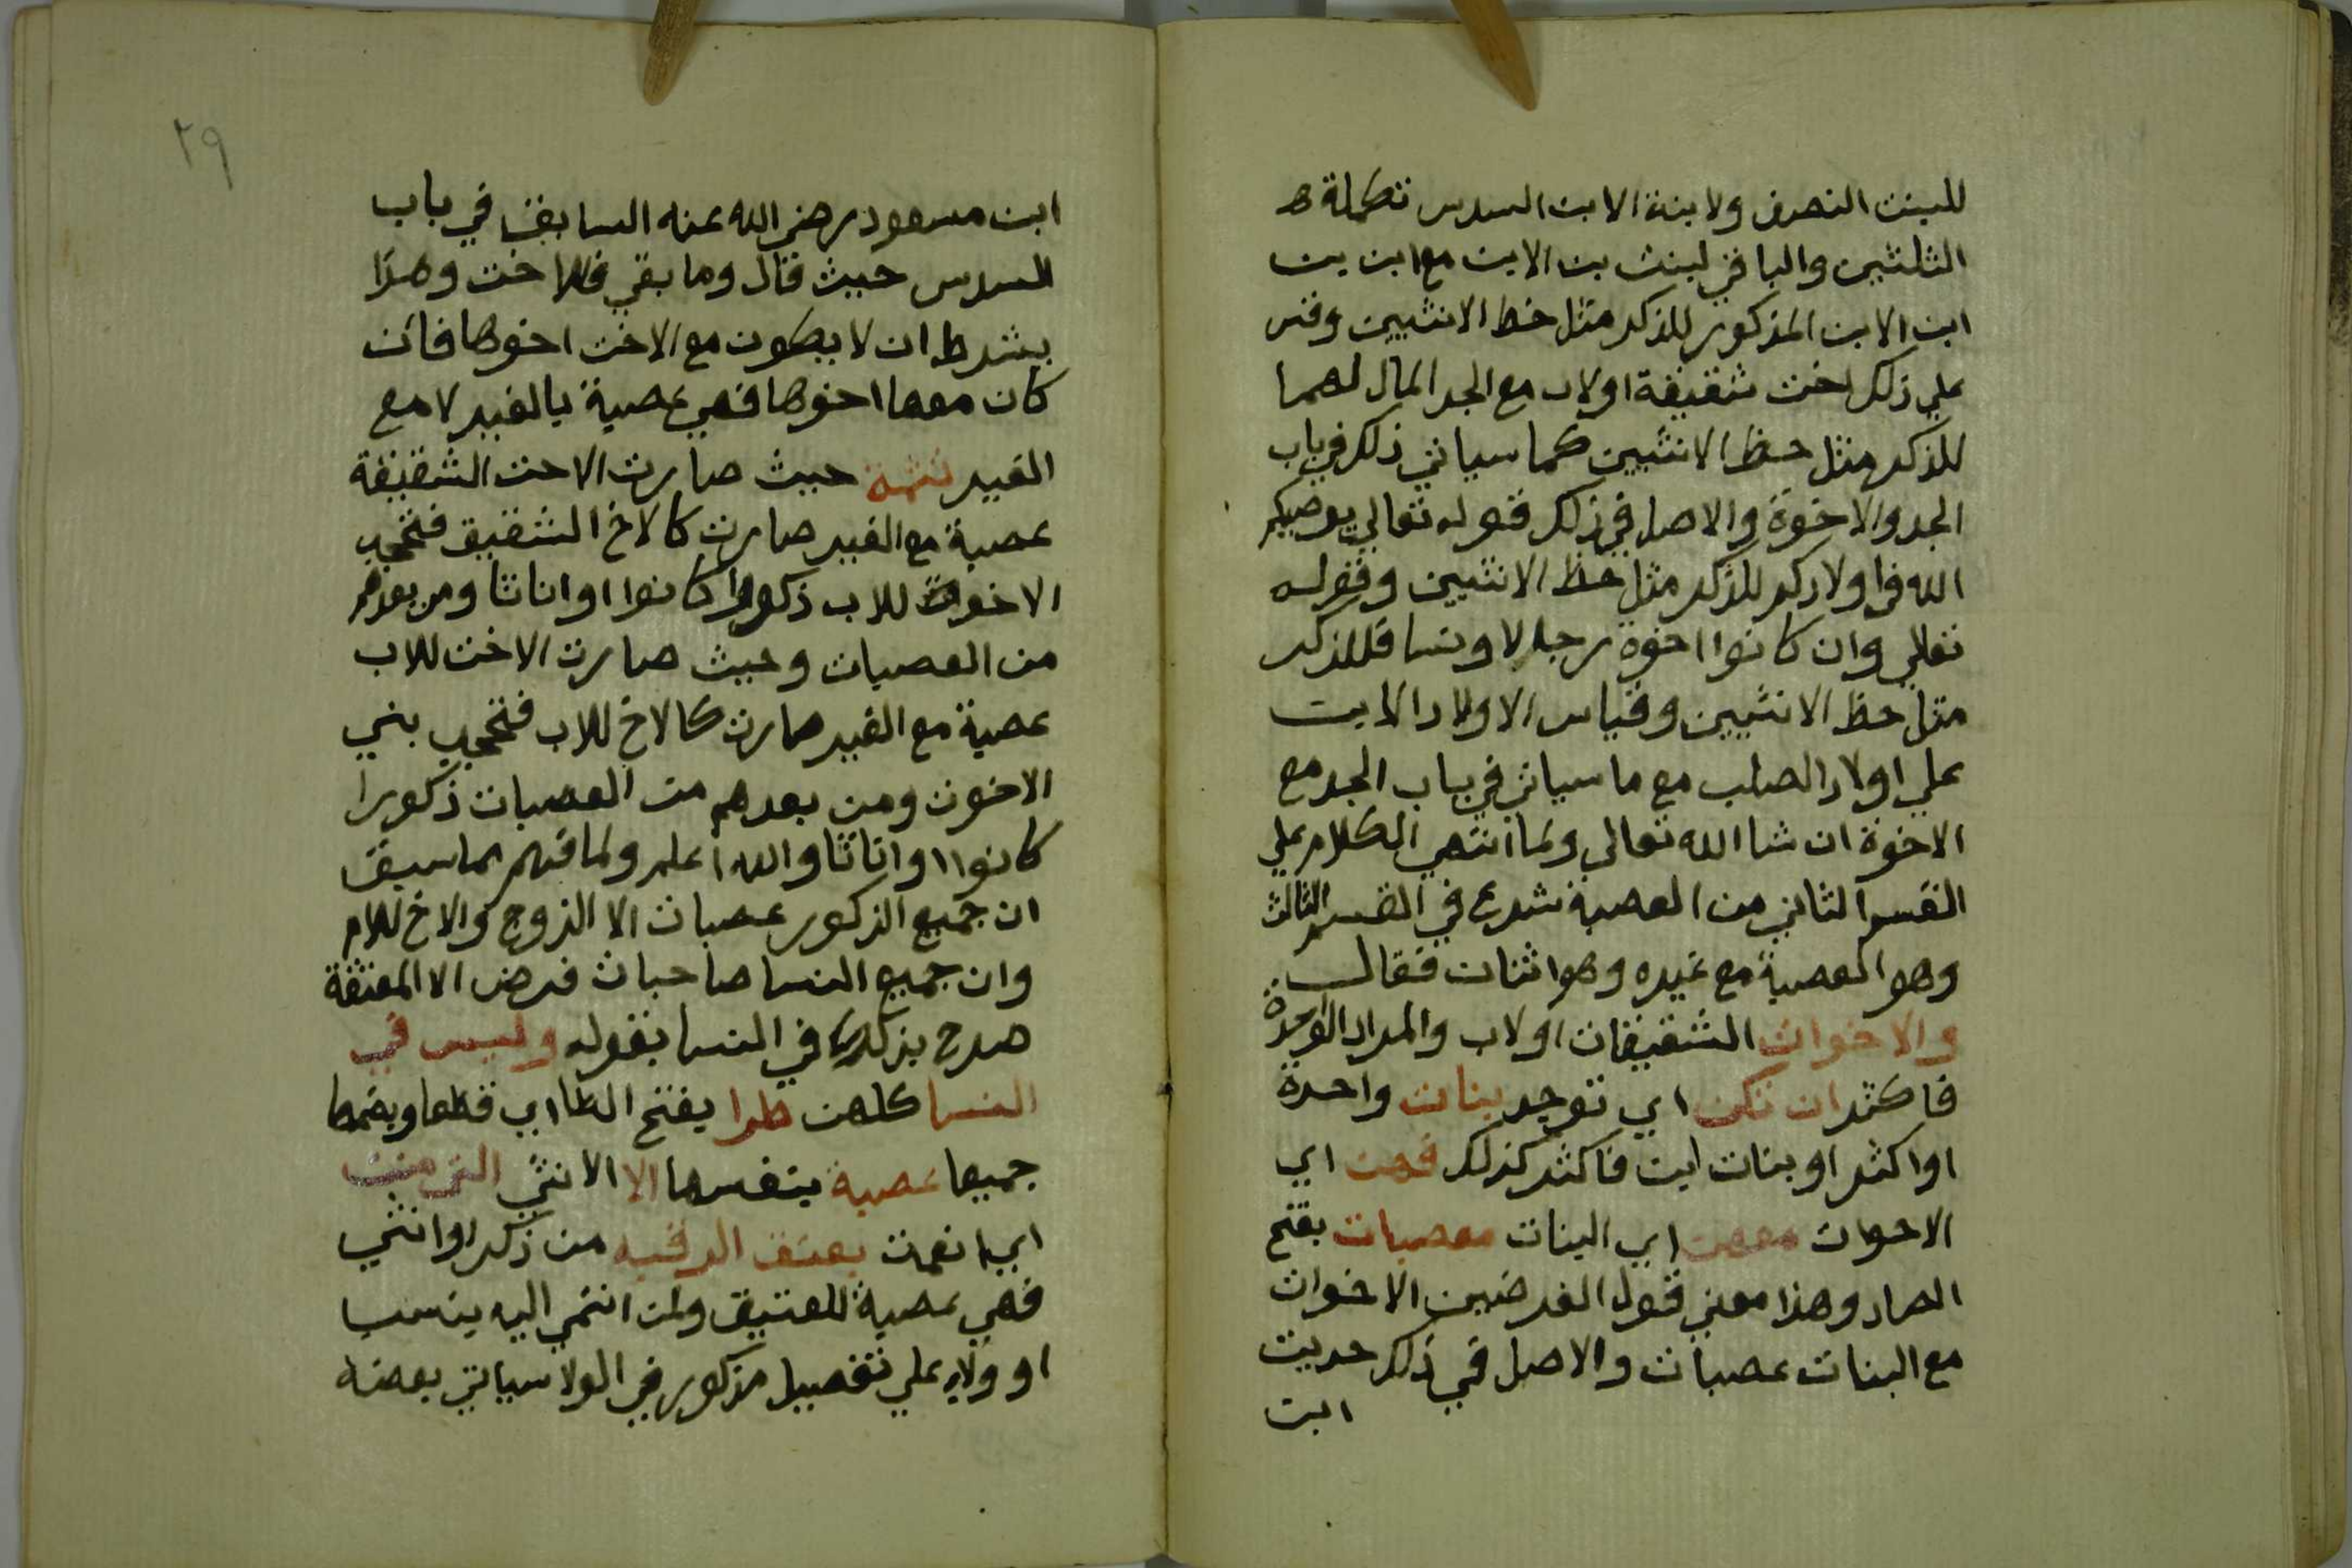 للبنت النصف ولابنة الابن السدس تكملة
الثلثين والباقي لبنت بن الابن مع ابن بن
ابن الابن المذكور للذكر مثل حظ الانثيين وقس
علي ذلك اخت شقيقة او لاب مع الجد المال لهما
للذكر مثل حظ الانثيين كما سياتي ذلك في باب
الجد والاخوة والاصل في ذلك قوله تعالي يوصيكم
الله في اولادكم للذكر مثل حظ الانثيين وقوله
تعالي وان كانوا اخوة رجالا ونسا فللذكر
مثل حظ الانثيين وقياس الاولاد الابن
علي اولاد الصلب مع ما سياتي في باب الجد مع
الاخوة ان شا الله تعالي ولما انتهي الكلام علي
القسم الثاني من العصبة شرع في القسم الثالث
وهو العصبة مع غيره وهو اثنان فقال
والاخوات الشقيقات او لاب والمراد الواحدة
فاكثر ان تكن اي توجد بنات واحدة
او اكثر او بنات ابن فاكثر كذلك فهن اي
الاخوات معهن اي البنات معصبات بفتح
الصاد وهذا معني قول الفرضيين الاخوات
مع البنات عصبات والاصل في ذلك حديث
ابن
٢٩
ابن مسعود رضي الله عنه السابق في باب
السدس حيث قال وما بقي فللاخت وهذا
بشرط ان لا يكون مع الاخت اخوها فان
كان معها اخوها فهي عصبة بالغير لا مع
الغير تتمة حيث صارت الاخت الشقيقة
عصبة مع الغير صارت كالاخ الشقيق فتحجب
الاخوة للاب ذكورا كانوا او اناثا ومن بعدهم
من العصبات وحيث صارت الاخت للاب
عصبة مع الغير صارت كالاخ للاب فتحجب بني
الاخوة ومن بعدهم من العصبات ذكورا
كانوا او اناثا والله اعلم ولما فهم مما سبق
ان جميع الذكور عصبات الا الزوج والاخ للام
وان جميع النسا صاحبات فرض الا المعتقة
صرح بذلك في النسا بقوله وليس في
النسا كلهن طرا بفتح الطا اي قطعا وبضمها
جميعا عصبة بنفسها الا الانثي التي منت
اي انعمت بعتق الرقبه من ذكر او انثي
فهي عصبة للعتيق ولمن انتمي اليه بنسب
او ولاء علي تفصيل مذكور في الولا سياتي بعضه